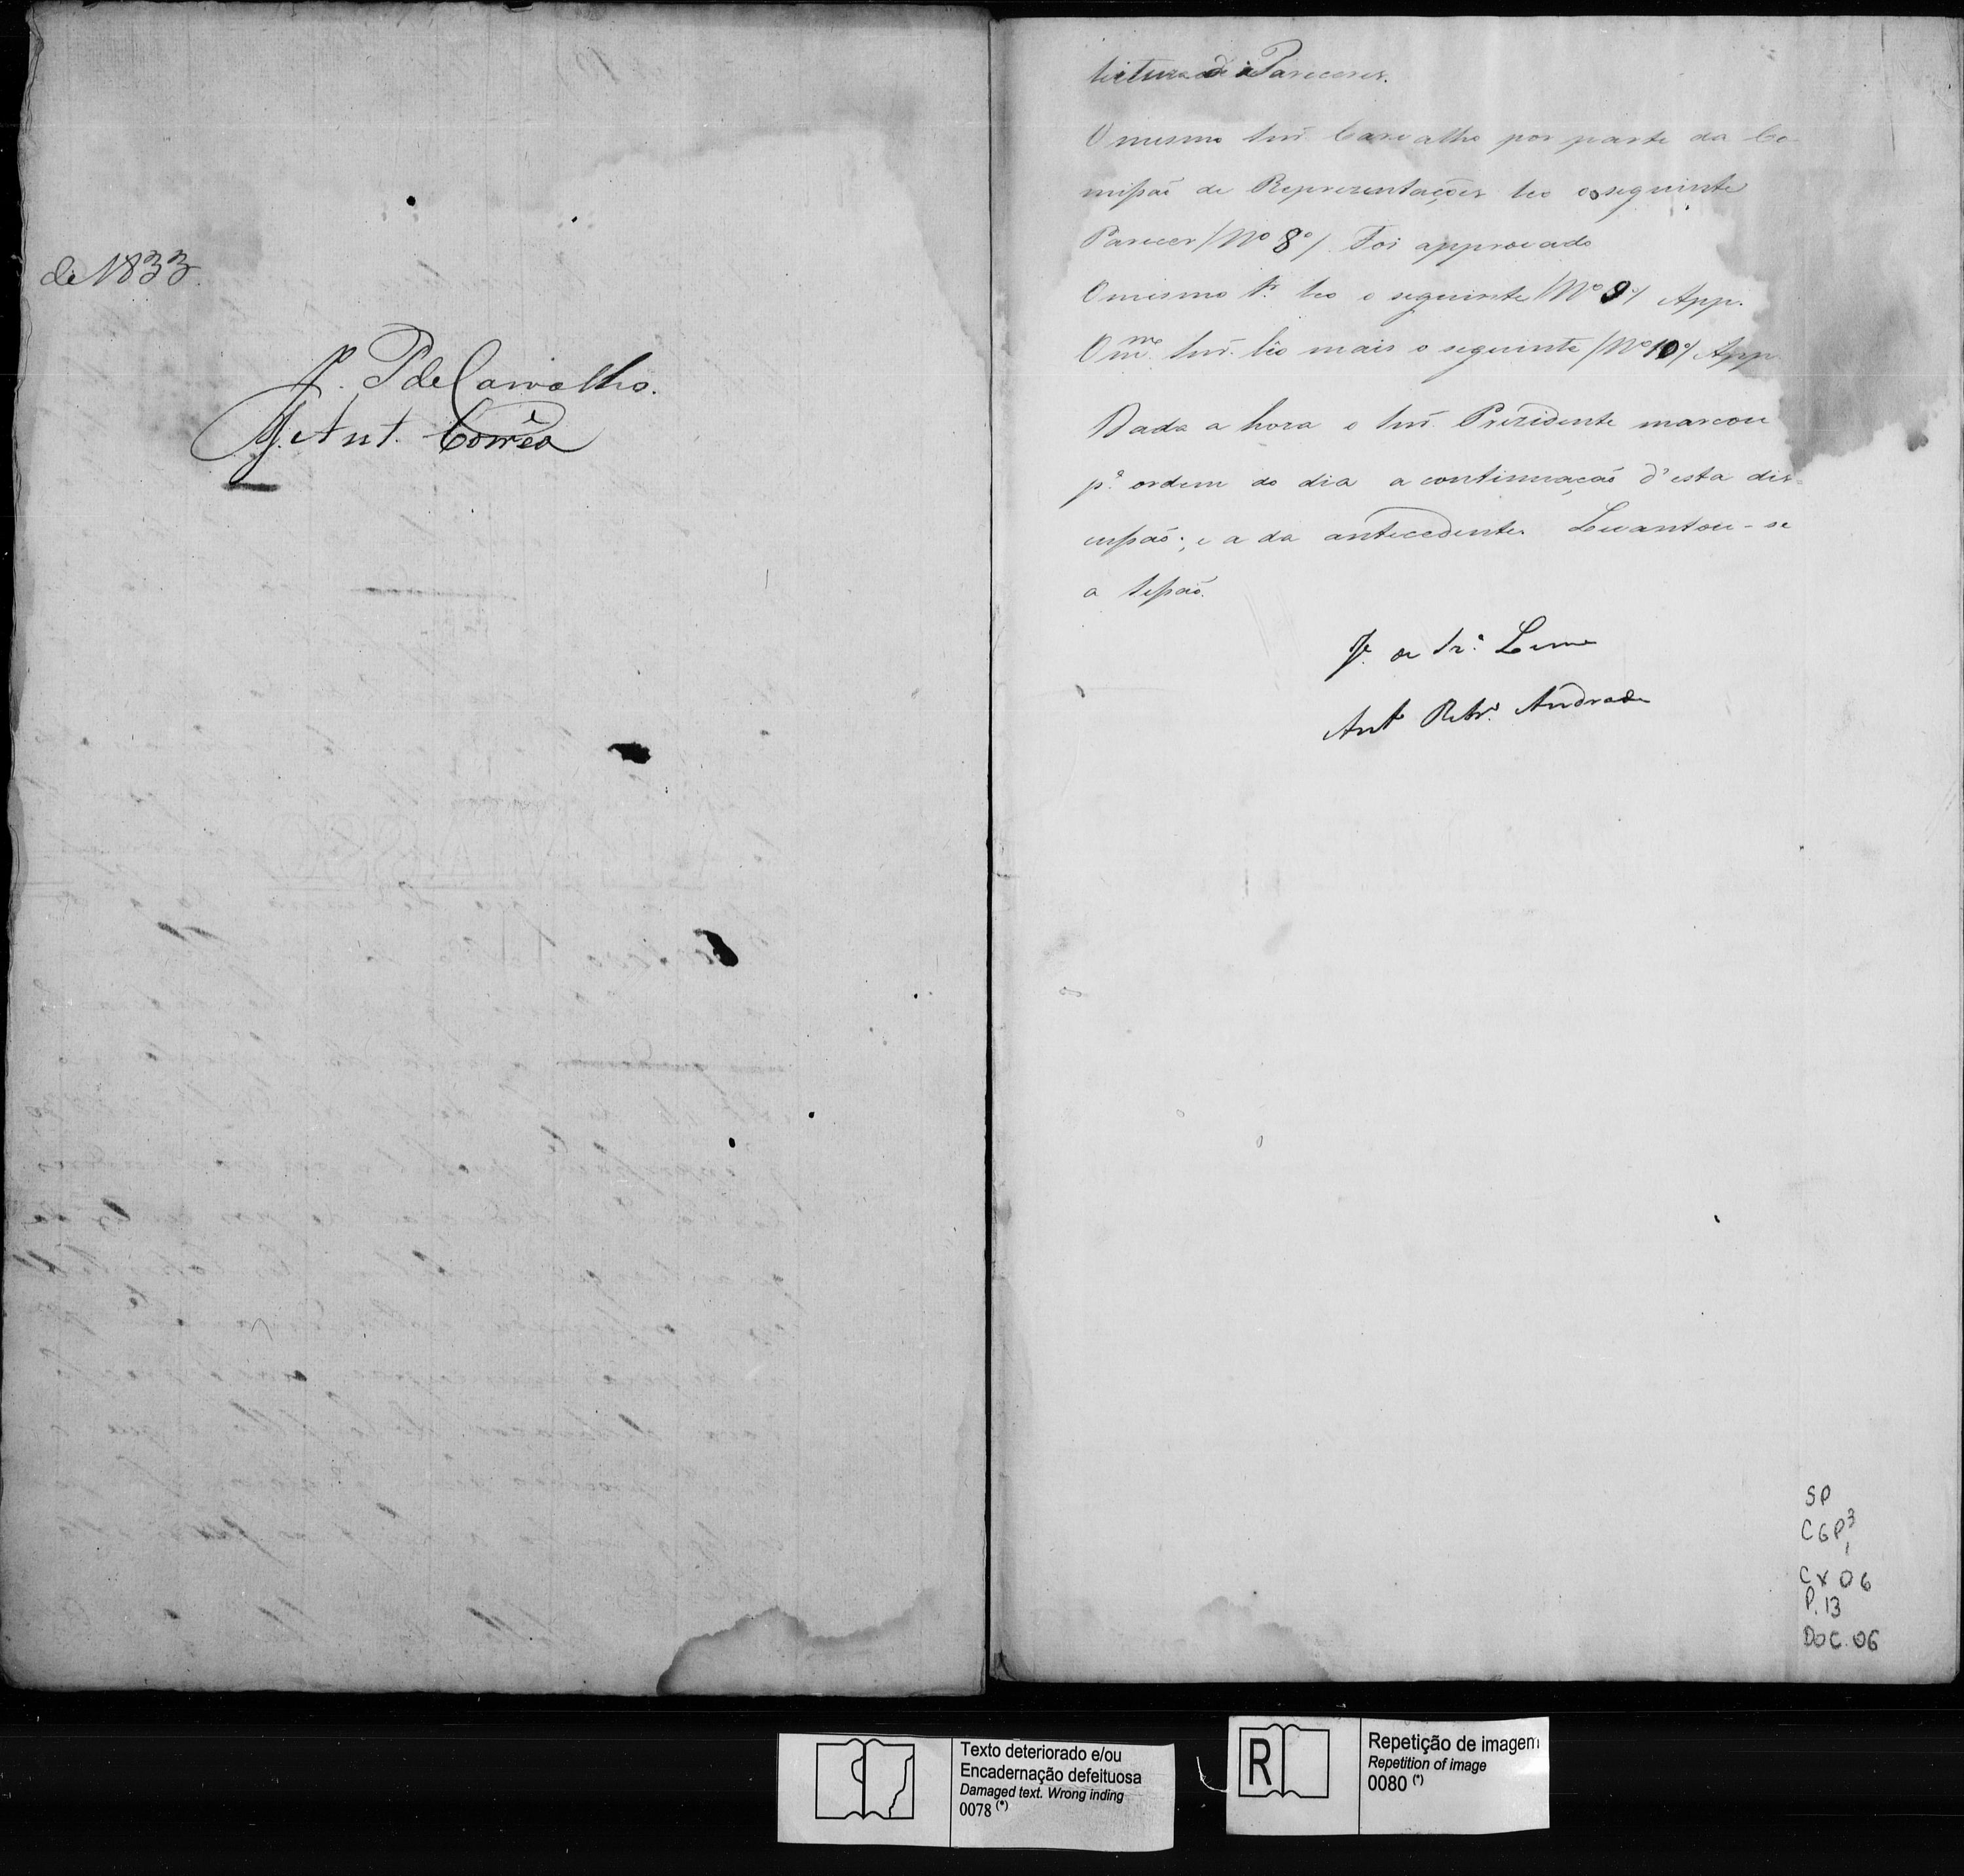 de 1833.
J. P de Carvalho.
M. Ant. Corrêa
leitura de Pareceres.
O mesmo Snr. Carvalho por parte da Co
missão de Reprezentações leo o seguinte
Parecer (Nº 8º) Foi approvado
O mesmo Sr. leo o seguinte (Nº 9º) App.
O mmo. Snr. lêo mais o seguinte (Nº 10º) App
Dada a hora o Snr. Prezidente marcou
pª ordem do dia a continuação d'esta dis-
cussão; e a da antecedente. Levantou-se
a Sessão.
Leme
Anto Andrade
SP
CGP3
1
CX 06
P. 13
DOC. 06
Texto deteriorado e/ou
Encadernação defeituosa
Damaged text. Wrong inding
0078 (*)
R
Repetição de imagem
Repetition of image
0080 (*)